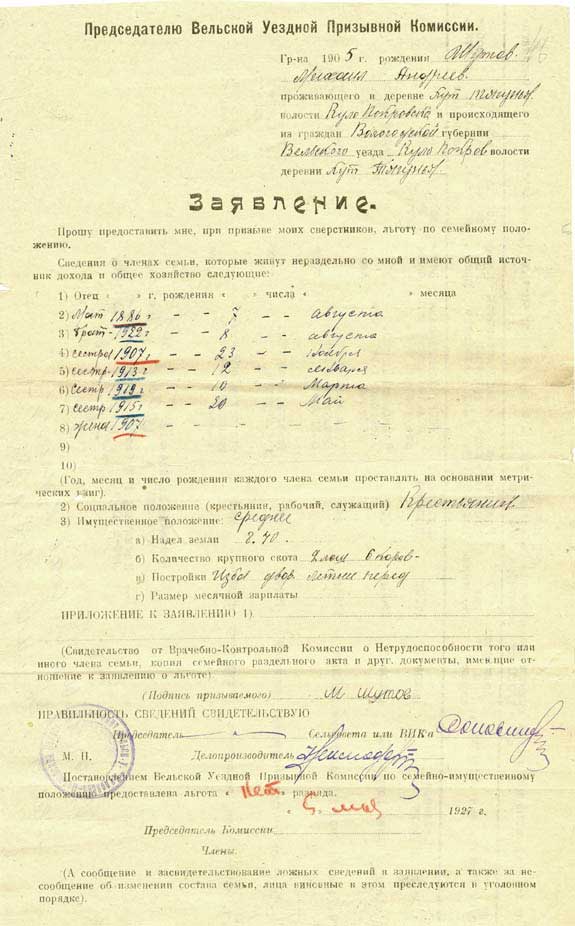 Председателю Вельской Уездной Призывной Комиссии.
Гр-на 1905 г. рождения Шутов
Михаил Андреев.
проживающего в деревне Кут
волости Куло Покровска и происходящего
из граждан Вологодской губернии
Вельского уезда Куло Покров волости
деревни Кут
Заявление.
Прошу предоставить мне, при призыве моих сверстников, льготу по семейному поло-
жению.
Сведения о членах семьи, которые живут нераздельно со мной и имеют общий источ-
ник дохода и общее хозяйство следующие:
1) Отец „ „ г. рождения „ „ числа „ „ месяца
2) Мат 1886 г - - 7 - - августа
3) брат - 1922 г - - 8 - - августа
4) сестра 1907 г - - 23 - - Ноября
5) сестр - 1913 г - - 12 - - января
6) Сестр 1919 г - - 10 - - Марта
7) сестр 1915 г - - 20 - - Май
8) жена 1907
9)
10)
(Год, месяц и число рождения каждого члена семьи проставлять на основании метри-
ческих книг).
2) Социальное положение (крестьянин, рабочий, служащий) Крестьянин
3) Имущественное положение: среднее
а) Надел земли 8.40.
б) Количество крупного скота 2 лош 6 коров
в) Постройки Изба двор летнее перед
г) Размер месячной зарплаты
ПРИЛОЖЕНИЕ К ЗАЯВЛЕНИЮ 1).
(Свидетельство от Врачебно-Контрольной Комиссии о Нетрудоспособности того или
иного члена семьи, копия семейного раздельного акта и друг. документы, имеющие от-
ношение к заявлению о льготе).
(Подпись призываемого) М Шутов
ПРАВИЛЬНОСТЬ СВЕДЕНИЙ СВИДЕТЕЛЬСТВУЮ
Председатель Сельсовета или ВИК'а
М. П. Делопроизводитель
Постановлением Вельской Уездной Призывной Комиссии по семейно-имущественному
положению предоставлена льгота „ Нет. разряда.
„ 5 „ мая 1927 г.
Председатель Комиссии
Члены:
(А сообщение и засвидетельствование ложных сведений в заявлении, а также за не-
сообщение об изменении состава семьи, лица виновные в этом преследуются в уголовном
порядке).